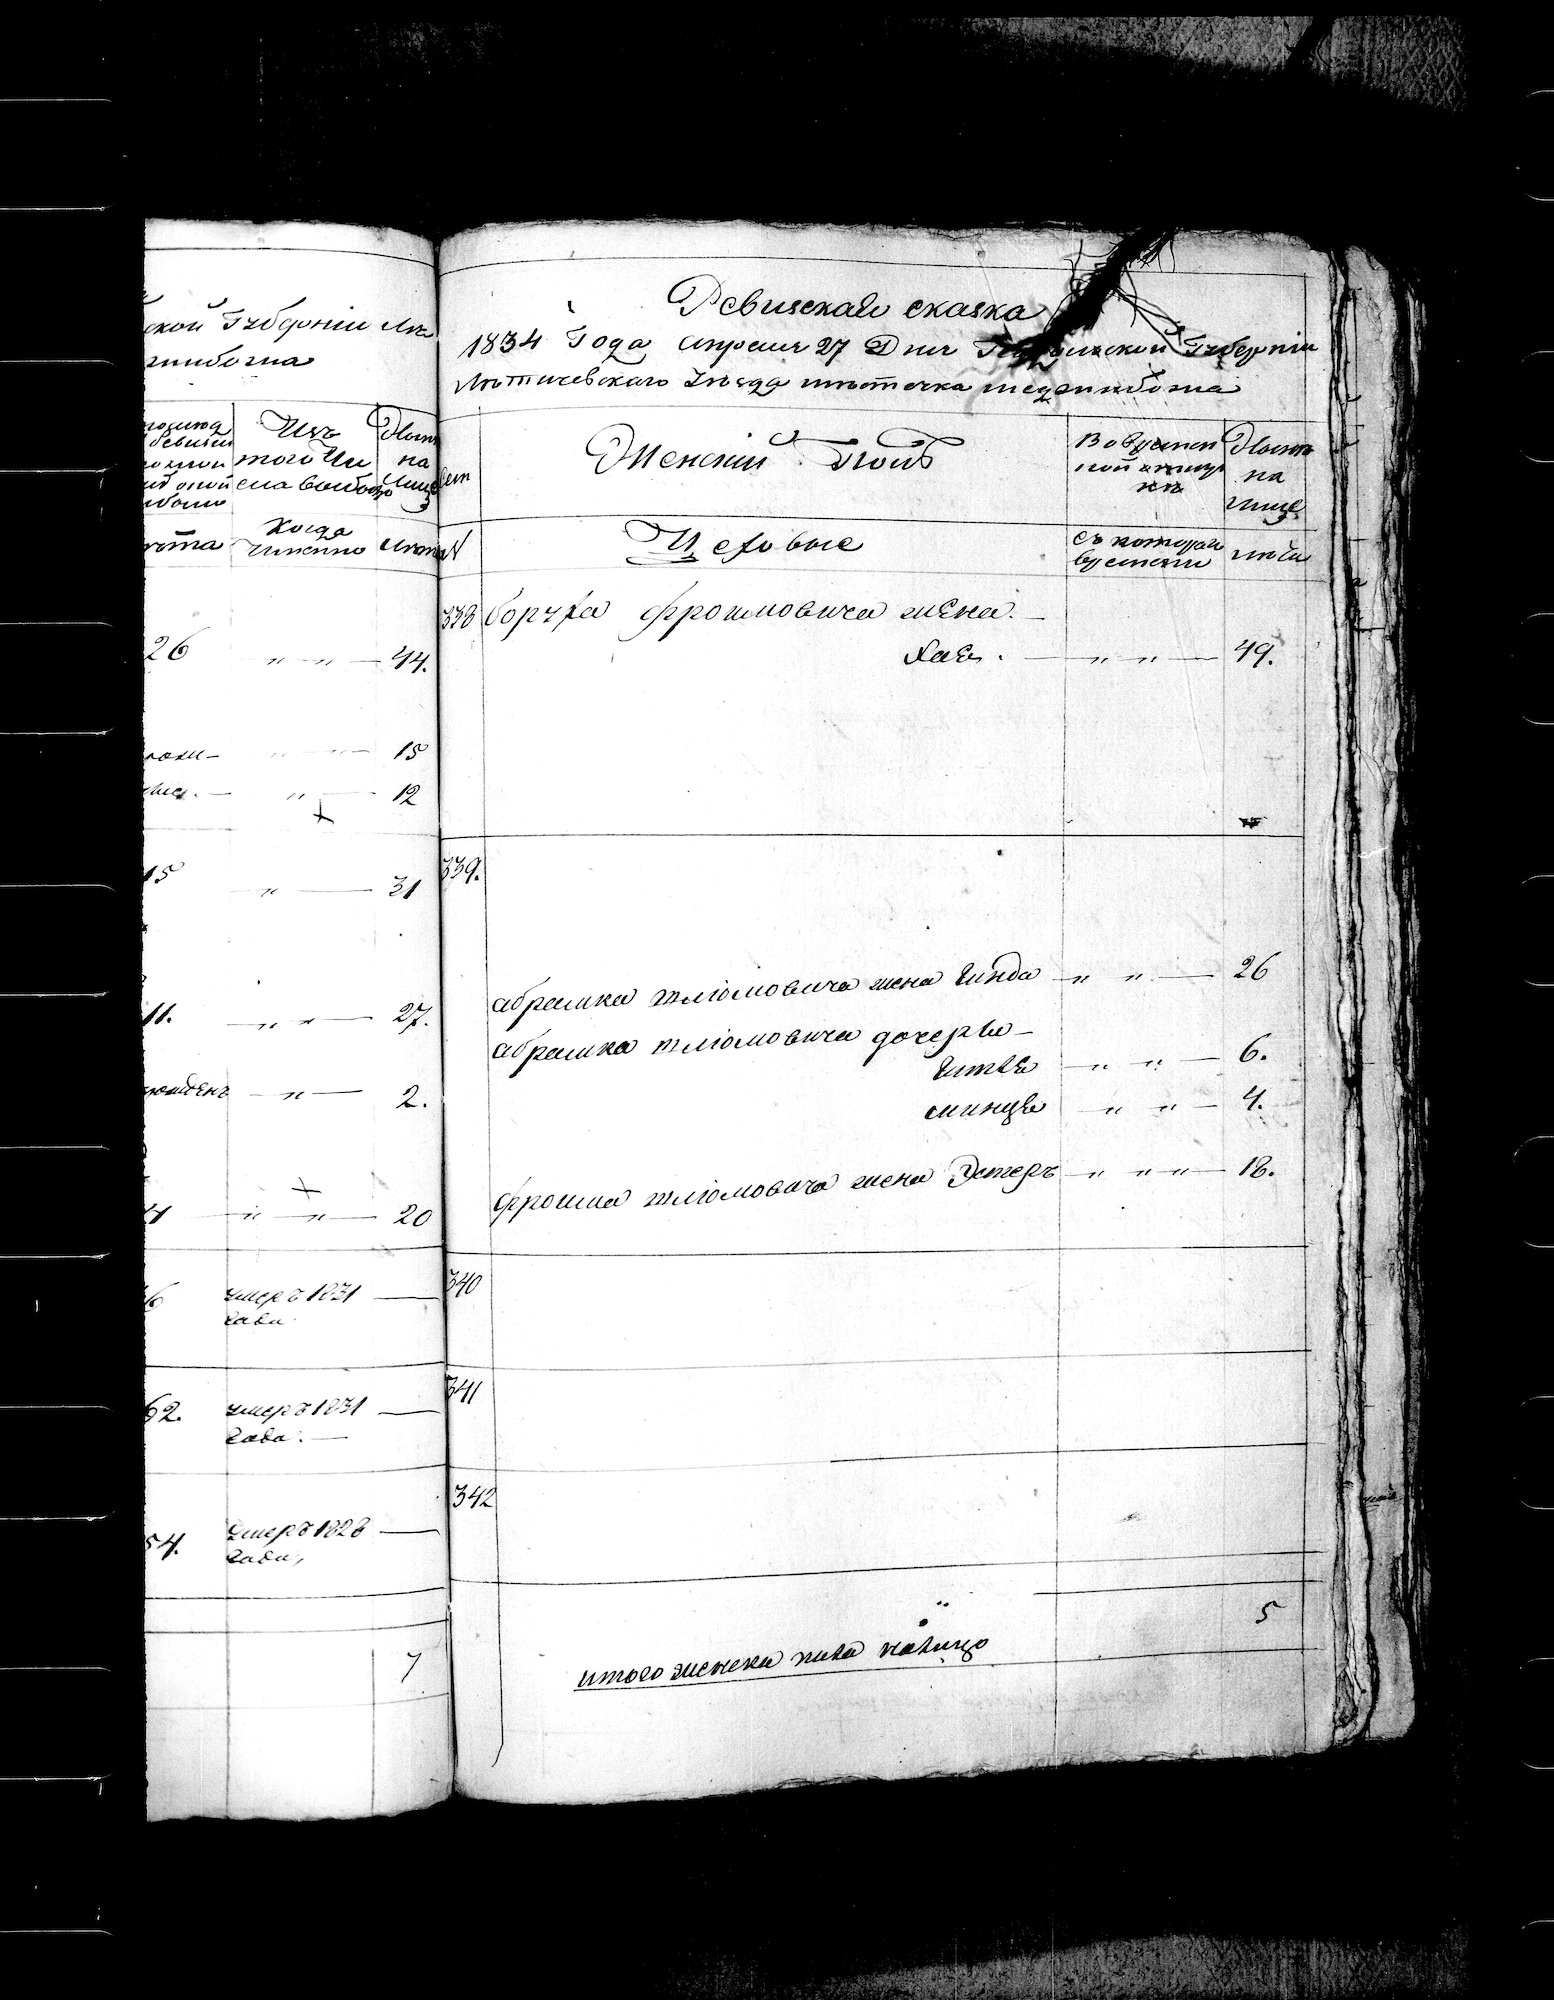 ской Губерніи Ле
жибожа
Изъ
того Чи
сла выбыло
на
лице
Когда
имянно
лета
26 „ „ 44.
„ „ 15
„ 12
15 „ 31
11. „ „ 27.
рожденъ „ 2.
„ „ 20
умеръ 1831
года
62. умеръ 1831
года.
54. умеръ 1828
года,
7
Ревизская сказка
1834 Года Апреля 27 Дня Подольской Губерніи
Летичевскаго Уезда местечка меджибожа
Женскій Полъ
Во времен
ной отлуч
ке
Ныне
на
лице
№
Цеховые
съ котораго
времени
лета
338 Боруха Фроимовича жена
Хая. „ „ 49.
339.
абрамка шлiомовича жена Гинда „ „ 26
абрамка шлiомовича дочеры
Гитля „ „ 6.
минця „ „ 4.
Фроима шлiомовича жена Эстеръ „ „ „ 18.
340
341
342
итого женска пола налицо 5